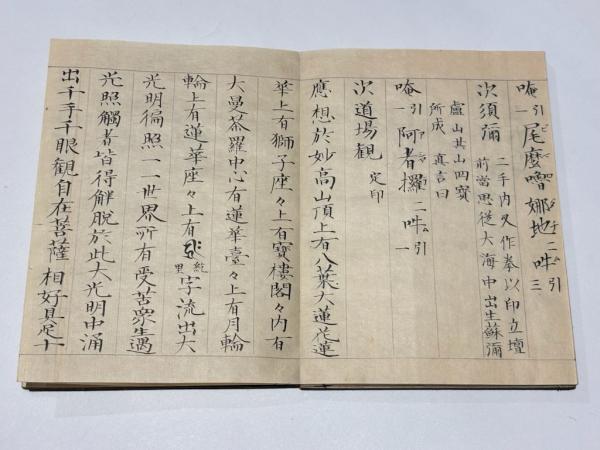 唵一引尾麼嚕娜地二吽引三
次須彌 二手內叉作拳以印立壇
前當思從大海中出生蘇彌
盧山其山四寶
所成 真言曰
唵一引阿者攞二吽引一
次道場觀 定印
應想於妙高山頂上有八葉大蓮花蓮
華上有獅子座々上有寶樓閣々內有
大曼荼羅中心有蓮華臺々上有月輪
輪上有蓮華座々上有紇里字流出大
光明徧照一一世界所有受苦眾生遇
光照觸者皆得解脫於此大光明中涌
出千手千眼観自在菩薩 相好具足十